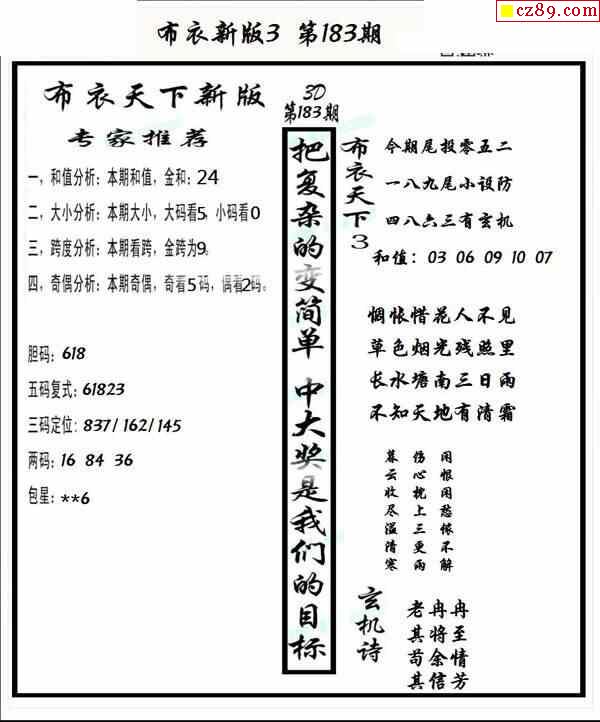 cz89.com
布衣新版3 第183期
布衣天下新版
专家推荐
一，和值分析：本期和值，金和：24
二，大小分析：本期大小，大码看5，小码看0
三，跨度分析：本期看跨，金跨为9。
四，奇偶分析：本期奇偶，奇看5码，偶看2码。
胆码：618
五码复式：61823
三码定位：837/162/145
两码：16 84 36
包星：**6
3D
第183期
把复杂的变简单 中大奖是我们的目标
布衣天下3
今期尾投零五二
一八九尾小设防
四八六三有玄机
和值：03 06 09 10 07
惆怅惜花人不见
草色烟光残照里
长水塘南三日雨
不知天地有清霜
暮云收尽溢清寒
伤心枕上三更雨
闲恨闲愁倷不解
玄机诗
老冉冉
其将至
苟余情
其信芳